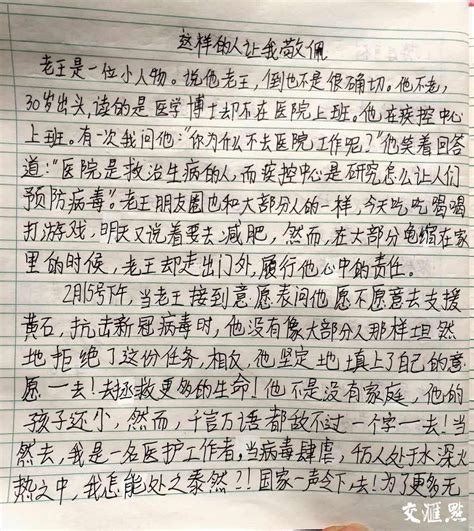 这样的人让我敬佩
老王是一位小人物。说他老王，倒也不是很确切。他不老，
30岁出头，读的是医学博士却不在医院上班。他在疾控中心
上班。有一次我问他："你为什么不去医院工作呢？"他笑着回答
道："医院是救治生病的人，而疾控中心是研究怎么让人们
预防病毒"。老王朋友圈也和大部分人的一样，今天吃吃喝喝
打游戏，明天又说着要去减肥，然而，在大部分龟缩在家
里的时候，老王却走出门外，履行他心中的责任。
2月15号下午，当老王接到意愿表问他愿不愿意去支援
黄石，抗击新冠病毒时，他没有像大部分人那样坦然
地拒绝了这份任务，相反，他坚定地填上了自己的意
愿一去！去拯救更多的生命！他不是没有家庭，他的
孩子还小，然而，千言万语都敌不过一个字一去！当
然去，我是一名医护工作者，当病毒肆虐，千万人处于水深火
热之中，我怎能处之泰然？！国家一声令下，去！为了更多无
交汇点